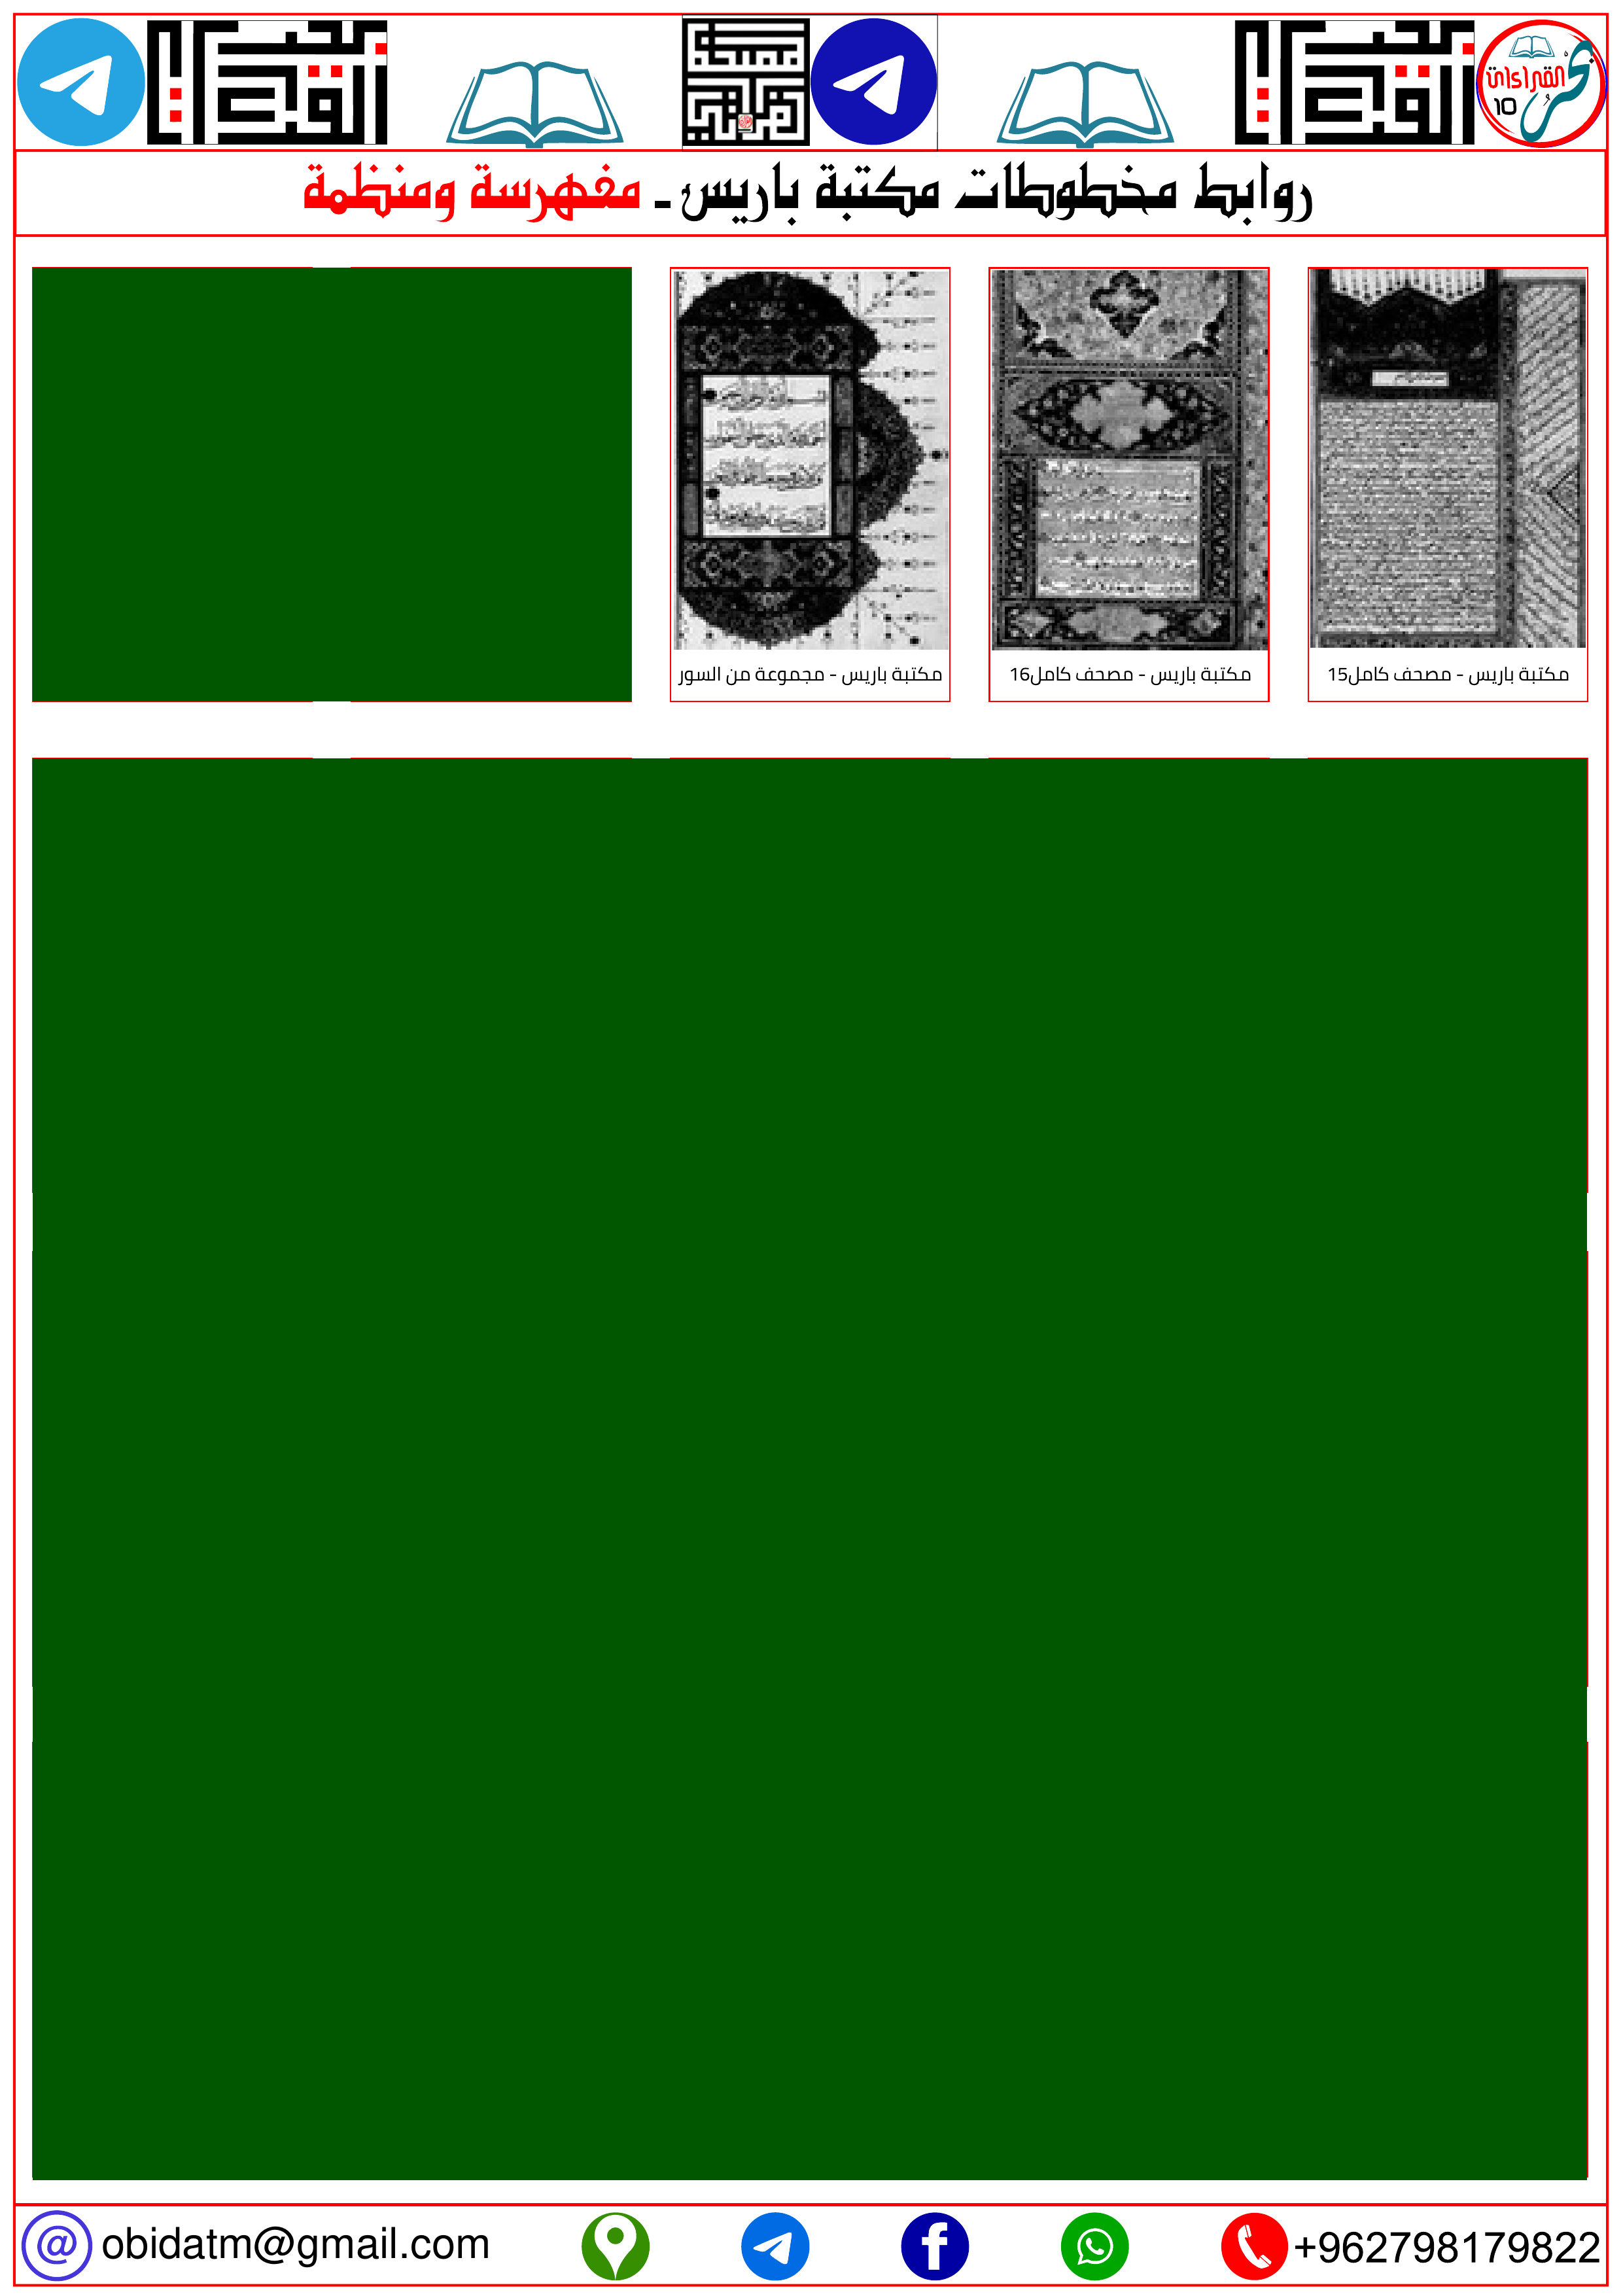 القراءات
10
روابط مخطوطات مكتبة باريس - مفهرسة ومنظمة
مكتبة باريس - مصحف كامل15
مكتبة باريس - مصحف كامل16
مكتبة باريس - مجموعة من السور
obidatm@gmail.com
+962798179822